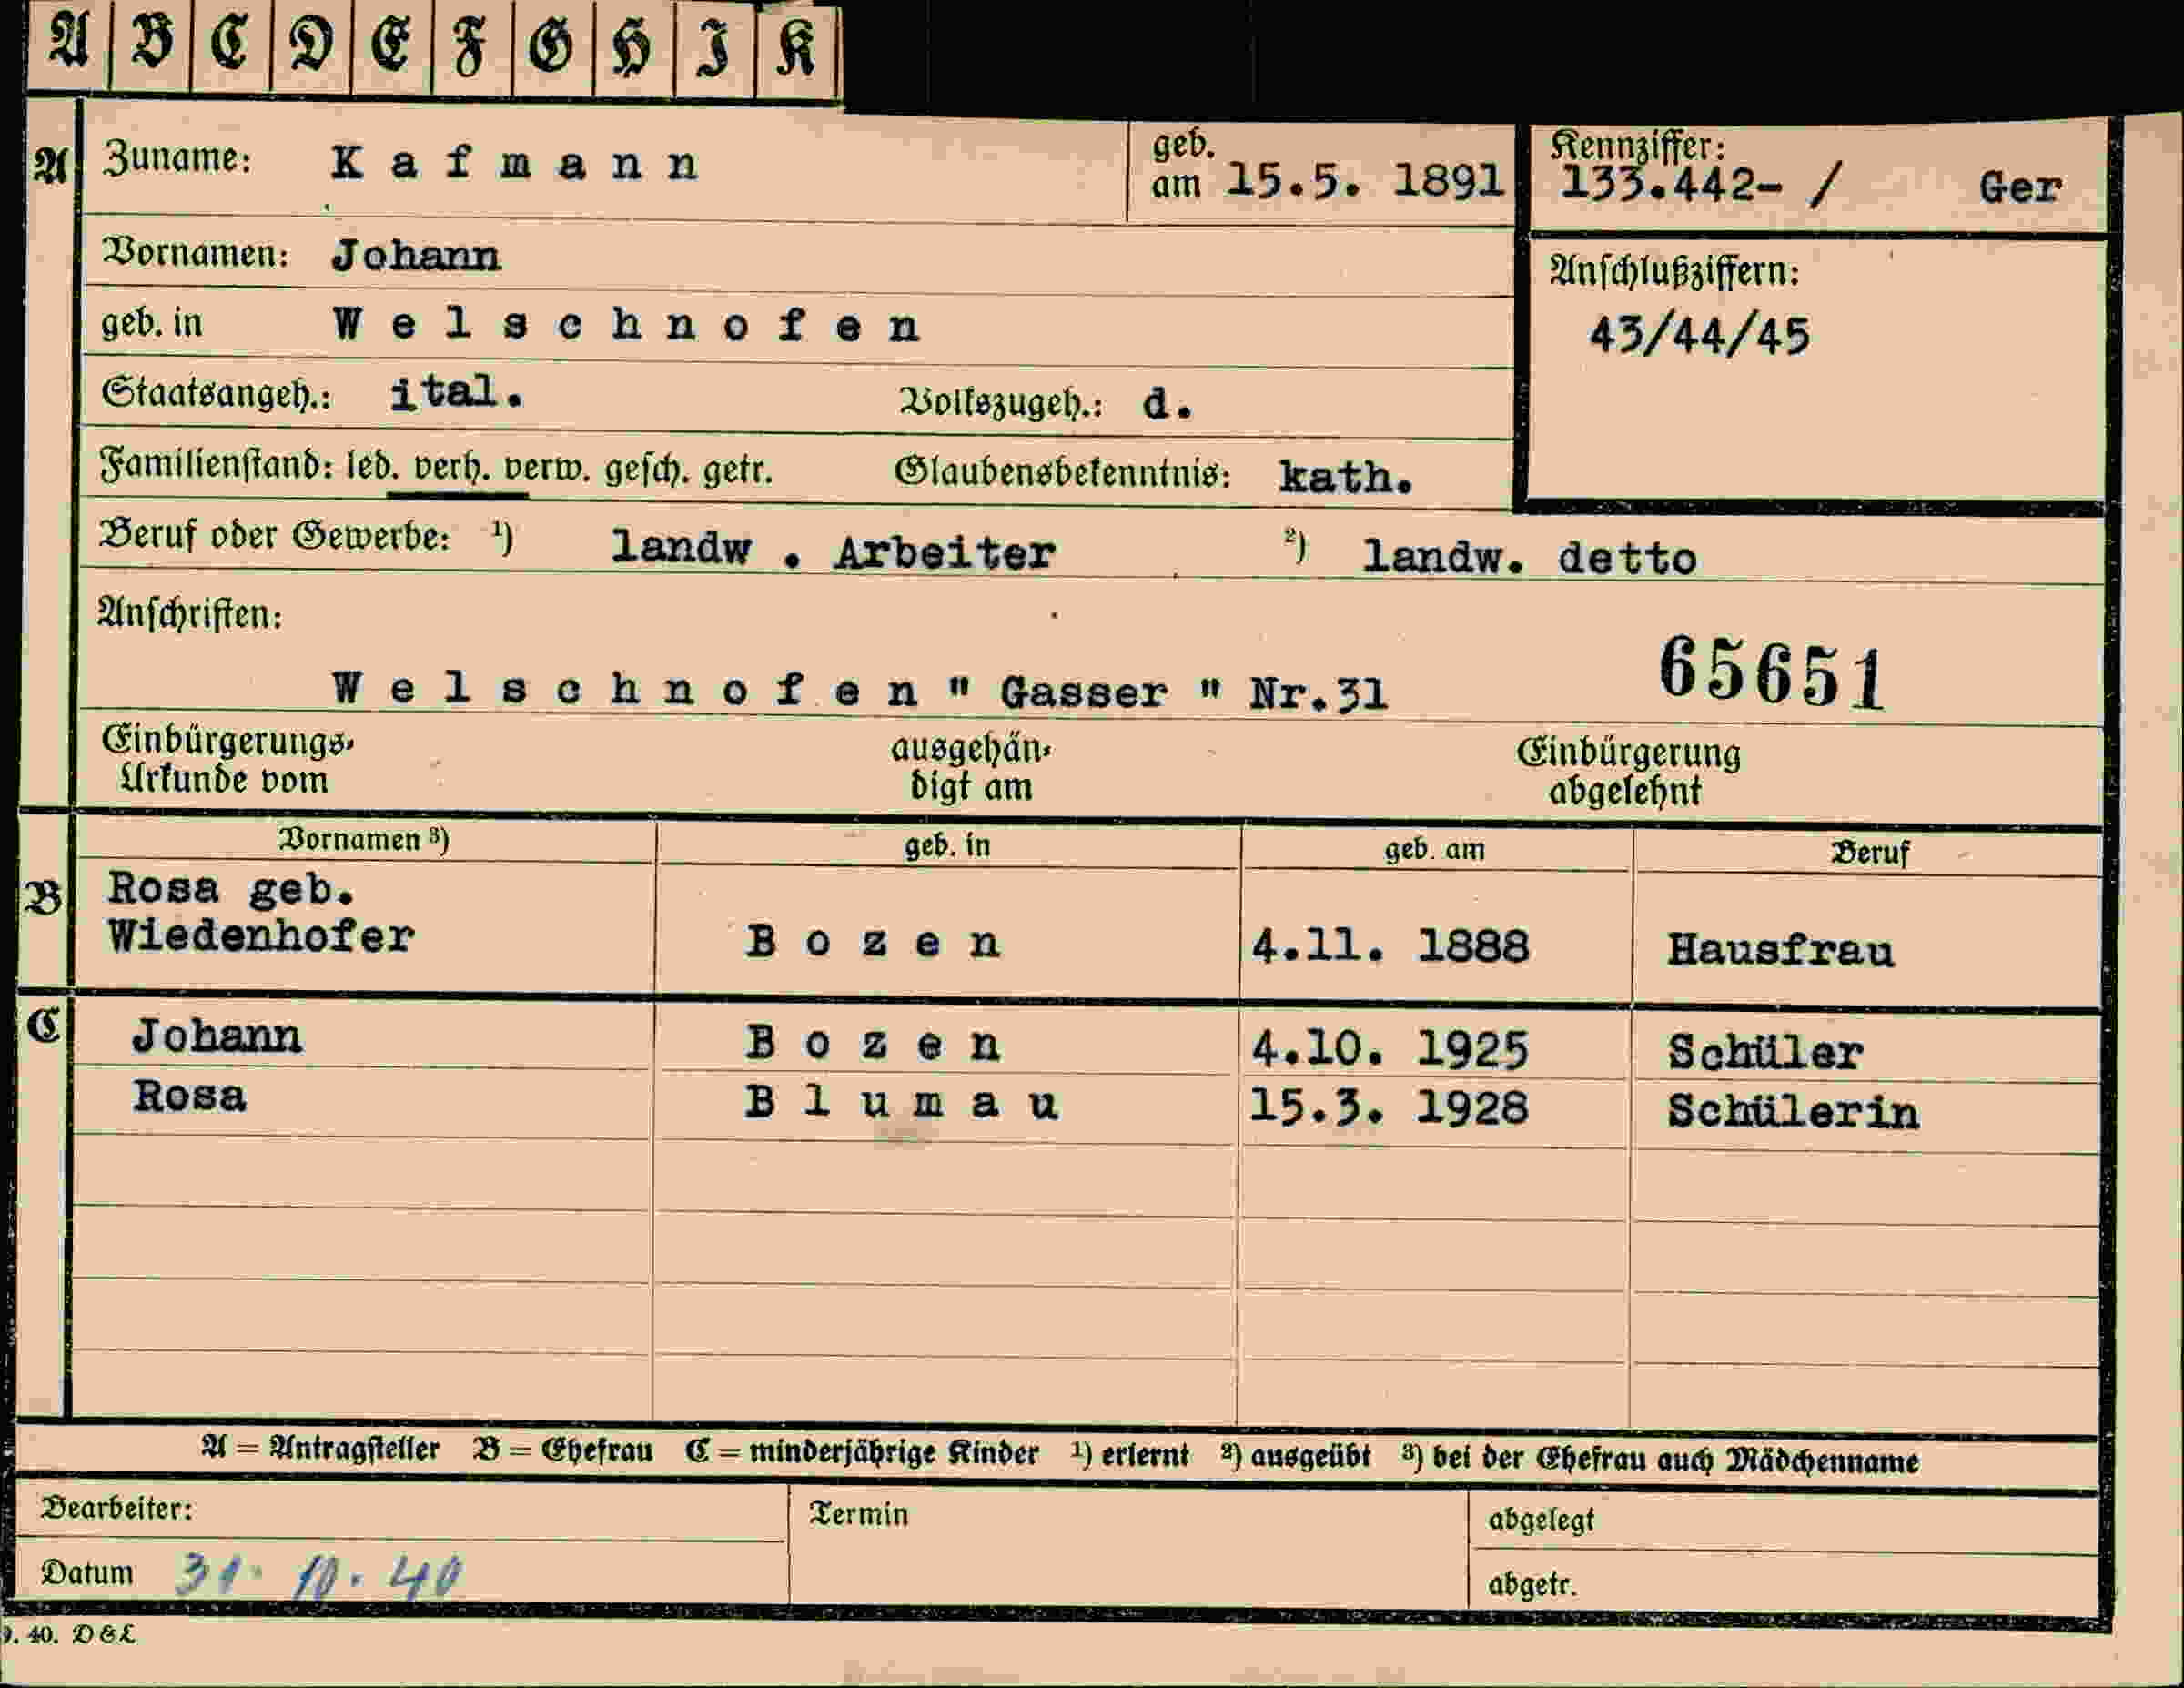 A B C D E F G H I K
A Zuname: Kafmann geb. am 15.5. 1891 Kennziffer: 133.442- / Ger
Vornamen: Johann
Anschlußziffern:
geb. in Welschnofen 43/44/45
Staatsangeh.: ital. Volkszugeh.: d.
Familienstand: led. verh. verw. gesch. getr. Glaubensbekenntnis: kath.
Beruf oder Gewerbe: 1) landw . Arbeiter 2) landw. detto
Anschriften:
Welschnofen " Gasser " Nr.31 65651
Einbürgerungs- ausgehän- Einbürgerung
Urkunde vom digt am abgelehnt
Vornamen 3) geb. in geb. am Beruf
B Rosa geb.
Wiedenhofer Bozen 4.11. 1888 Hausfrau
C Johann Bozen 4.10. 1925 Schüler
Rosa Blumau 15.3. 1928 Schülerin
A = Antragsteller B = Ehefrau C = minderjährige Kinder 1) erlernt 2) ausgeübt 3) bei der Ehefrau auch Mädchenname
Bearbeiter: Termin abgelegt
Datum 31. 10. 40 abgetr.
9. 40. D & L